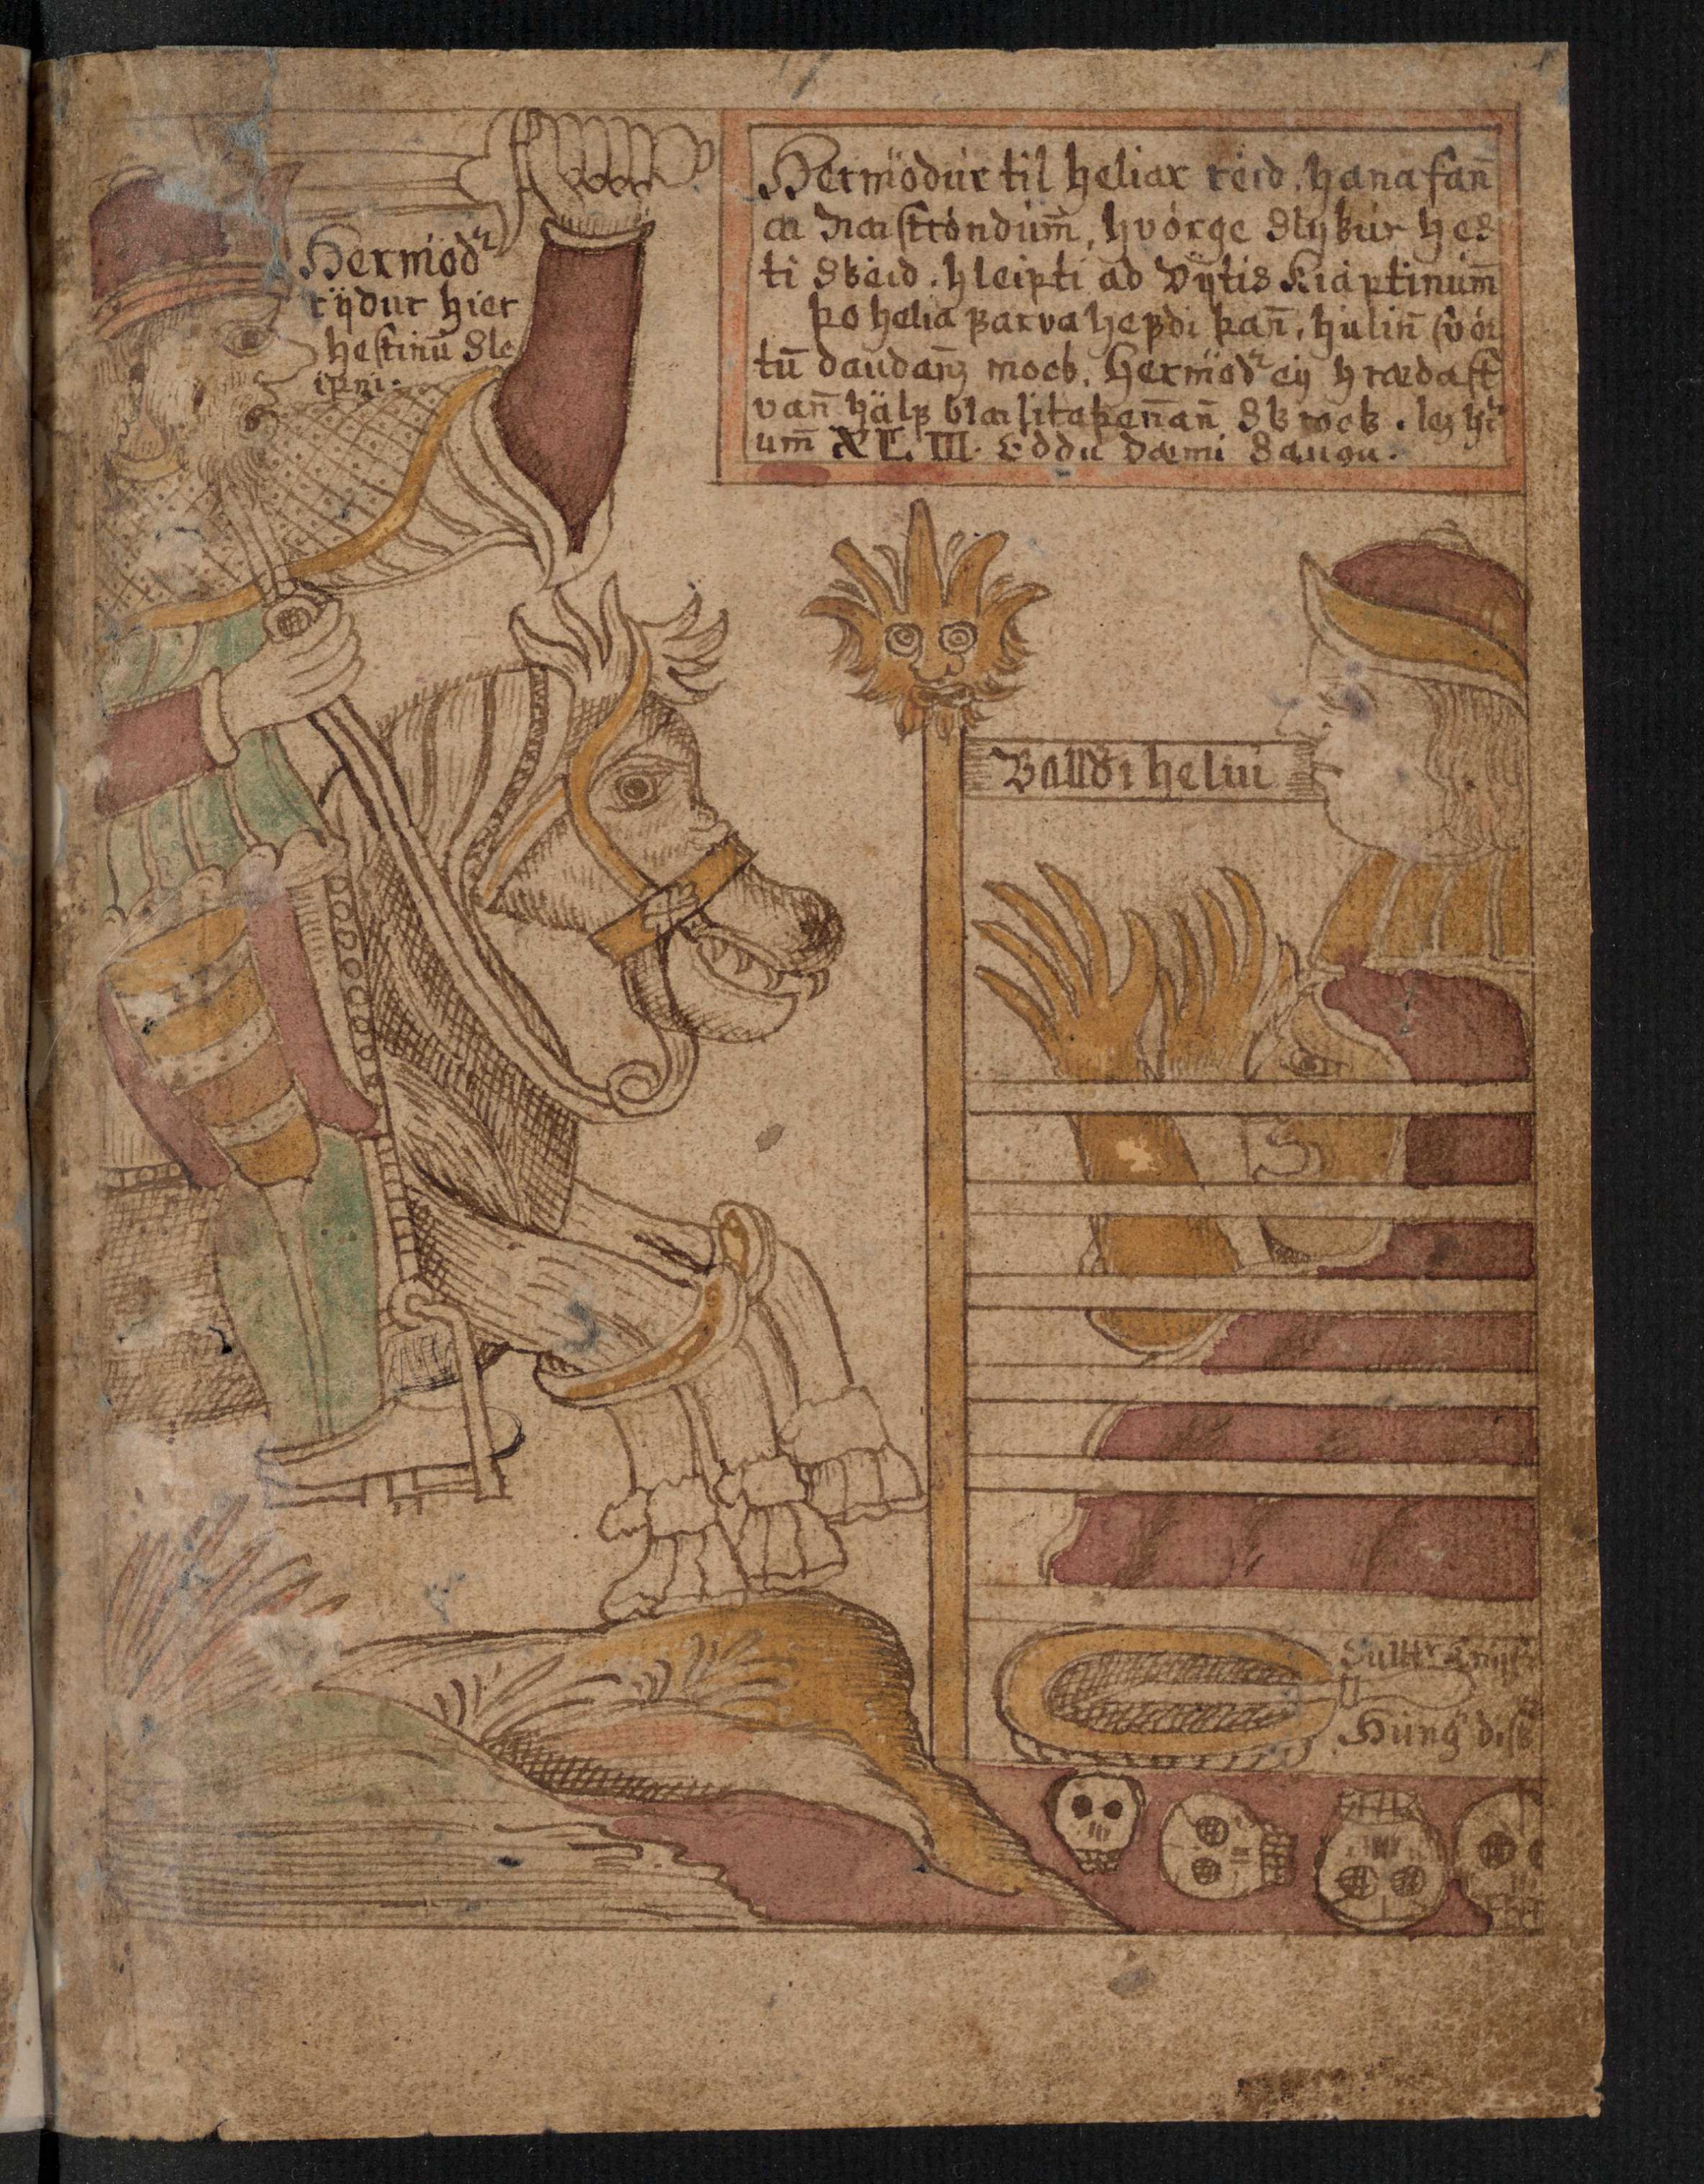 Hermödur til heliar reid, hana fan̄
a Nastrondum̄, hvorge slijkur hes
ti skeid, hleipti ad Vijtis kiaptinum̄
þo helia þarva hefdi þan̄, hulin svor
tū daudans mock, Hermödr ei hrædast
van̄ hälf blalitaþen̄an̄ skrock. les hr
um̄ XLIII. Eddu dæmi saugu.
Hermödr
rijdur hier
hestinū Sle
ipni.
Balldr i helui
Sulltr
Hungr disk